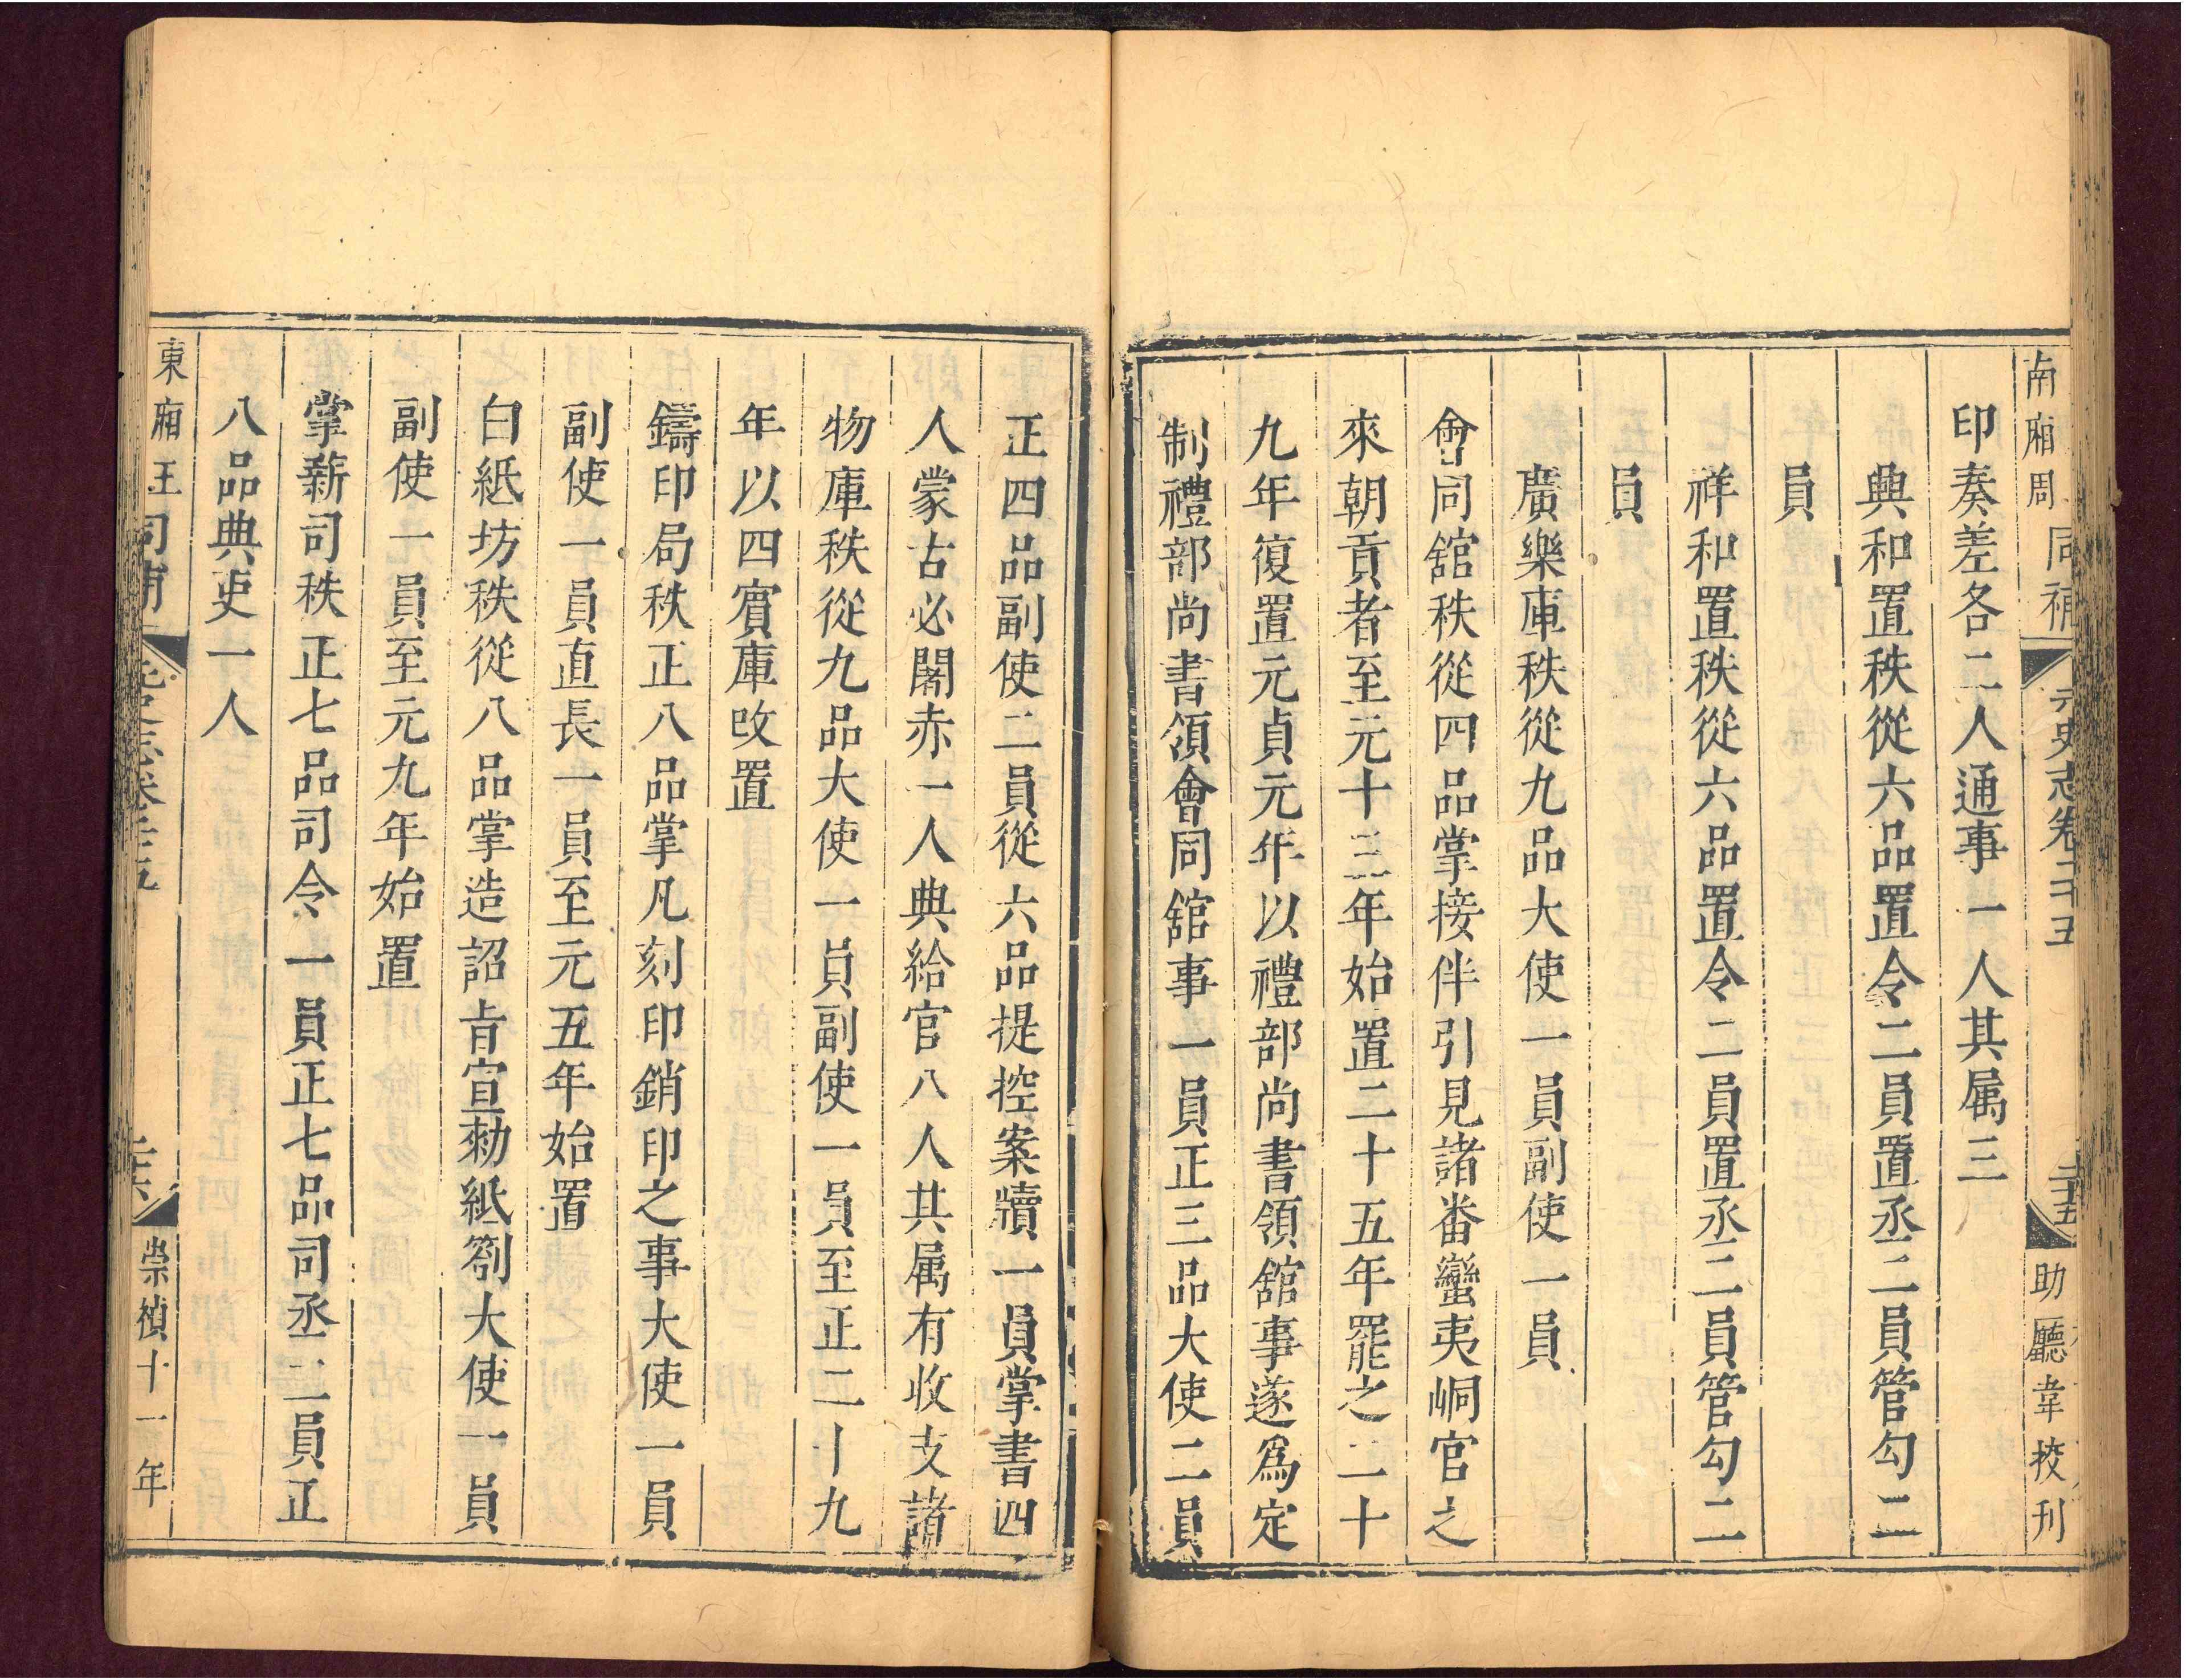 南廂周同補 元史志卷三十五 二十五 助廳韋挍刋
印奏差各二人通事一人其属三
興和署秩從六品署令二員署丞二員管勾二
員
祥和署秩從六品署令二員署丞二員管勾二
員
廣樂庫秩從九品大使一員副使一員
會同舘秩從四品掌接伴引見諸番蠻夷峒官之
來朝貢者至元十三年始置二十五年罷之二十
九年復置元貞元年以禮部尚書領舘事遂爲定
制禮部尚書領會同舘事一員正三品大使二員
正四品副使二員從六品提控案牘一員掌書四
人蒙古必闍赤一人典給官八人其属有收支諸
物庫秩從九品大使一員副使一員至正二十九
年以四賓庫改置
鑄印局秩正八品掌凡刻印銷印之事大使一員
副使一員直長一員至元五年始置
白紙坊秩從八品掌造詔旨宣勑紙劄大使一員
副使一員至元九年始置
掌薪司秩正七品司令一員正七品司丞二員正
八品典吏一人
東廂王司甫 元史志卷三十五 二十六 崇禎十一年